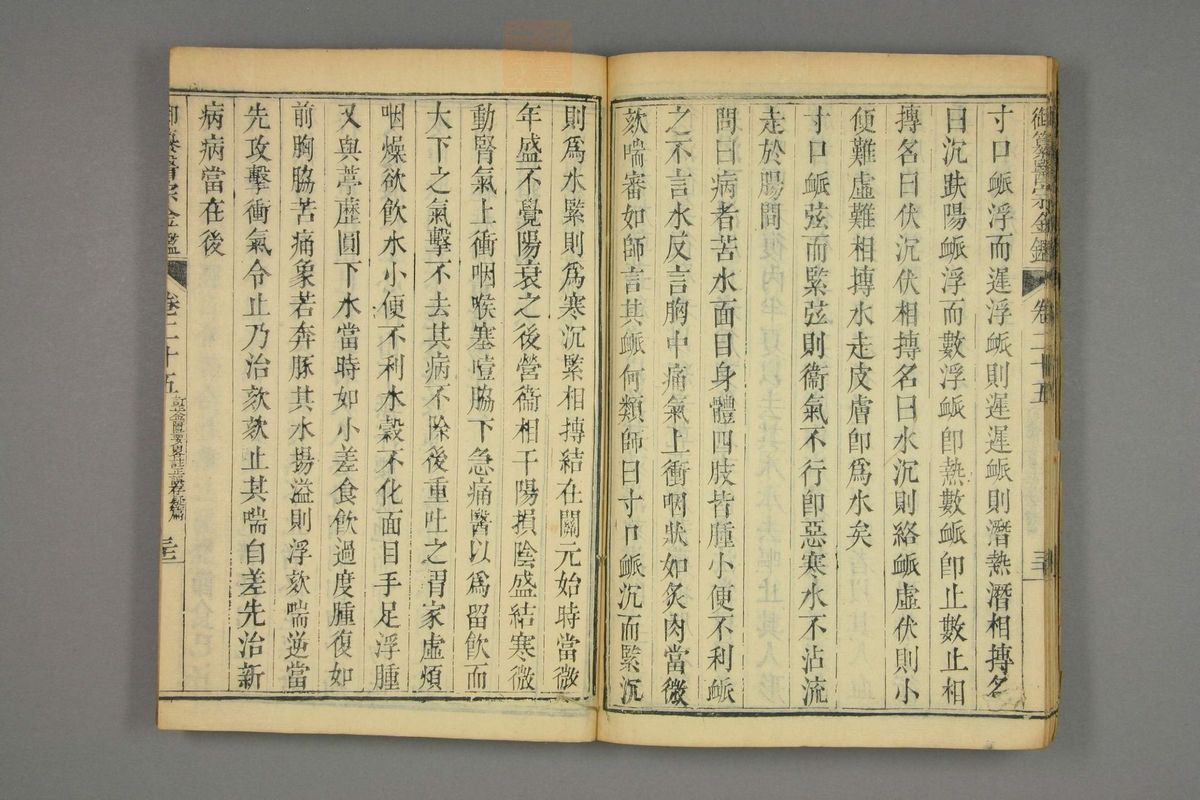 御纂醫宗金鑑 卷二十五
寸口衇浮而遲浮衇則遲遲衇則潛熱潛相搏名
曰沉趺陽衇浮而數浮衇卽熱數衇卽止數止相
搏名曰伏沉伏相搏名曰水沉則絡衇虛伏則小
便難虛難相搏水走皮膚卽爲水矣
寸口衇弦而緊弦則衞氣不行卽惡寒水不沾流
走於腸間
問曰病者苦水面目身體四肢皆腫小便不利衇
之不言水反言胸中痛氣上衝咽狀如炙肉當微
欬喘審如師言其衇何類師曰寸口衇沉而緊沉
則爲水緊則爲寒沉緊相搏結在關元始時當微
年盛不覺陽衰之後營衞相干陽損陰盛結寒微
動腎氣上衝咽喉塞噎脇下急痛醫以爲留飮而
大下之氣擊不去其病不除後重吐之胃家虛煩
咽燥欲飮水小便不利水穀不化面目手足浮腫
又與葶藶圓下水當時如小差食飮過度腫復如
前胸脇苦痛象若奔豚其水揚溢則浮欬喘逆當
先攻擊衝氣令止乃治欬欬止其喘自差先治新
病病當在後
御纂醫宗金鑑 卷二十五